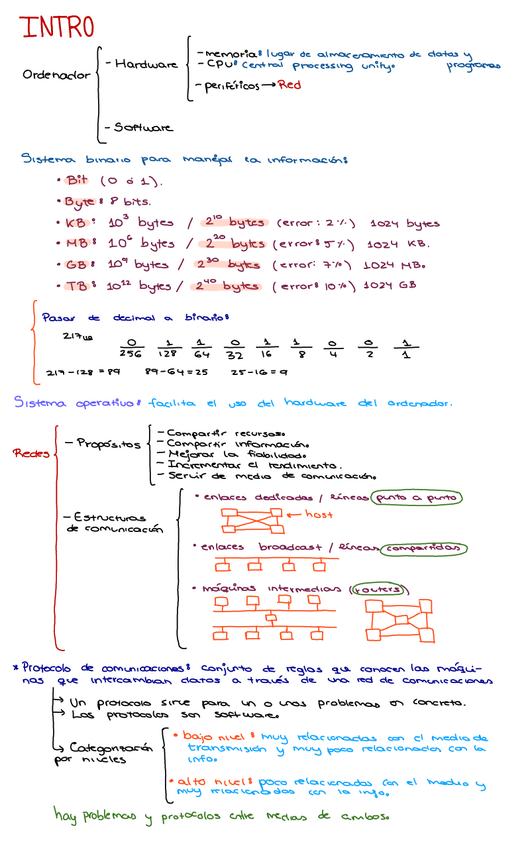 INTRO
Ordenador
- Hardware
- memoria: lugar de almacenamiento de datos y programas
- CPU: central processing unity.
- periféricos → Red
- Software
Sistema binario para manejar la información:
• Bit (0 ó 1).
• Byte: 8 bits.
• KB: 10³ bytes / 2¹⁰ bytes (error: 2%) 1024 bytes
• MB: 10⁶ bytes / 2²⁰ bytes (error: 5%) 1024 KB.
• GB: 10⁹ bytes / 2³⁰ bytes (error: 7%) 1024 MB.
• TB: 10¹² bytes / 2⁴⁰ bytes (error: 10%) 1024 GB
Pasar de decimal a binario:
217
0 1 1 0 1 1 0 0 1
256 128 64 32 16 8 4 2 1
217-128=89 89-64=25 25-16=9
Sistema operativo: facilita el uso del hardware del ordenador.
Redes
- Propósitos
- Compartir recursos.
- Compartir información.
- Mejorar la fiabilidad.
- Incrementar el rendimiento.
- Servir de medio de comunicación.
- Estructuras
de comunicación
• enlaces dedicados / líneas punto a punto
← host
• enlaces broadcast / líneas compartidas
• máquinas intermedias (routers)
* Protocolo de comunicaciones: conjunto de reglas que conocen las máqui-
nas que intercambian datos a través de una red de comunicaciones
→ Un protocolo sirve para un o unos problemas en concreto.
→ Los protocolos son software.
↳ Categorización
por niveles
• bajo nivel: muy relacionados con el medio de
transmisión y muy poco relacionados con la
info.
• alto nivel: poco relacionados con el medio y
muy relacionados con la info.
hay problemas y protocolos entre medias de ambos.